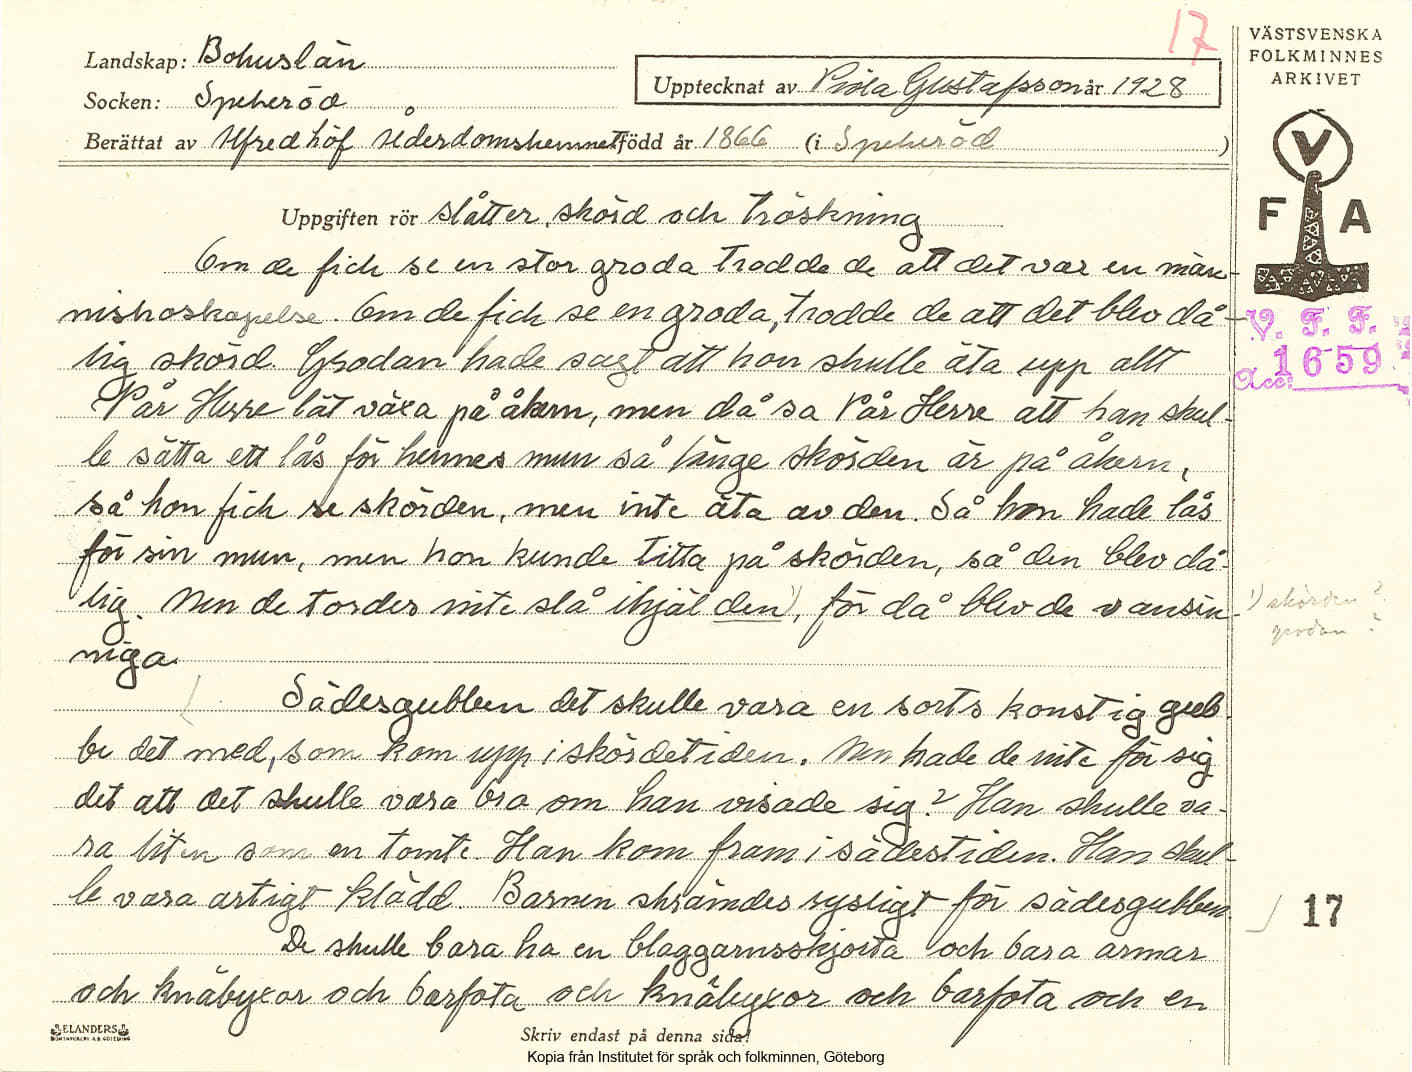 17
VÄSTSVENSKA
FOLKMINNES
ARKIVET
Landskap: Bohuslän
Upptecknat av Viola Gustafsson år 1928
Socken: Speheröd
Berättat av Alfred Löf Ålderdomshemmet född år 1866 (i Speheröd )
V
F A
Uppgiften rör slåtter, skörd och tröskning
Om de fick se en stor groda trodde de att det var en män-
nishoskapelse. Om de fick se en groda, trodde de att det blev då-
lig skörd. Grodan hade sagt att hon skulle äta upp allt
Vår Herre lät växa på åkern, men då sa Vår Herre att han skul-
le sätta ett lås för hennes mun så länge skörden är på åkern,
så hon fick se skörden, men inte äta av den. Så hon hade lås
för sin mun, men hon kunde titta på skörden, så den blev då-
lig. Men de tordes inte slå ihjäl den 1), för då blev de vansin-
niga.
V. F. F.
Acc: 1659
1) skörden ?
grodan ?
Sädesgubben det skulle vara en sorts konstig gub-
be det med, som kom upp i skördetiden. Men hade de inte för sig
det att det skulle vara bra om han visade sig? Han skulle va-
ra liten som en tomte. Han kom fram i sädestiden. Han skul-
le vara artigt klädd. Barnen skrämdes rysligt för sädesgubben.
De skulle bara ha en blaggarnsskjorta och bara armar
och knäbyxor och barfota och knäbyxor och barfota och en
17
ELANDERS
BOKTRYCKERI A.B. GÖTEBORG
Skriv endast på denna sida!
Kopia från Institutet för språk och folkminnen, Göteborg